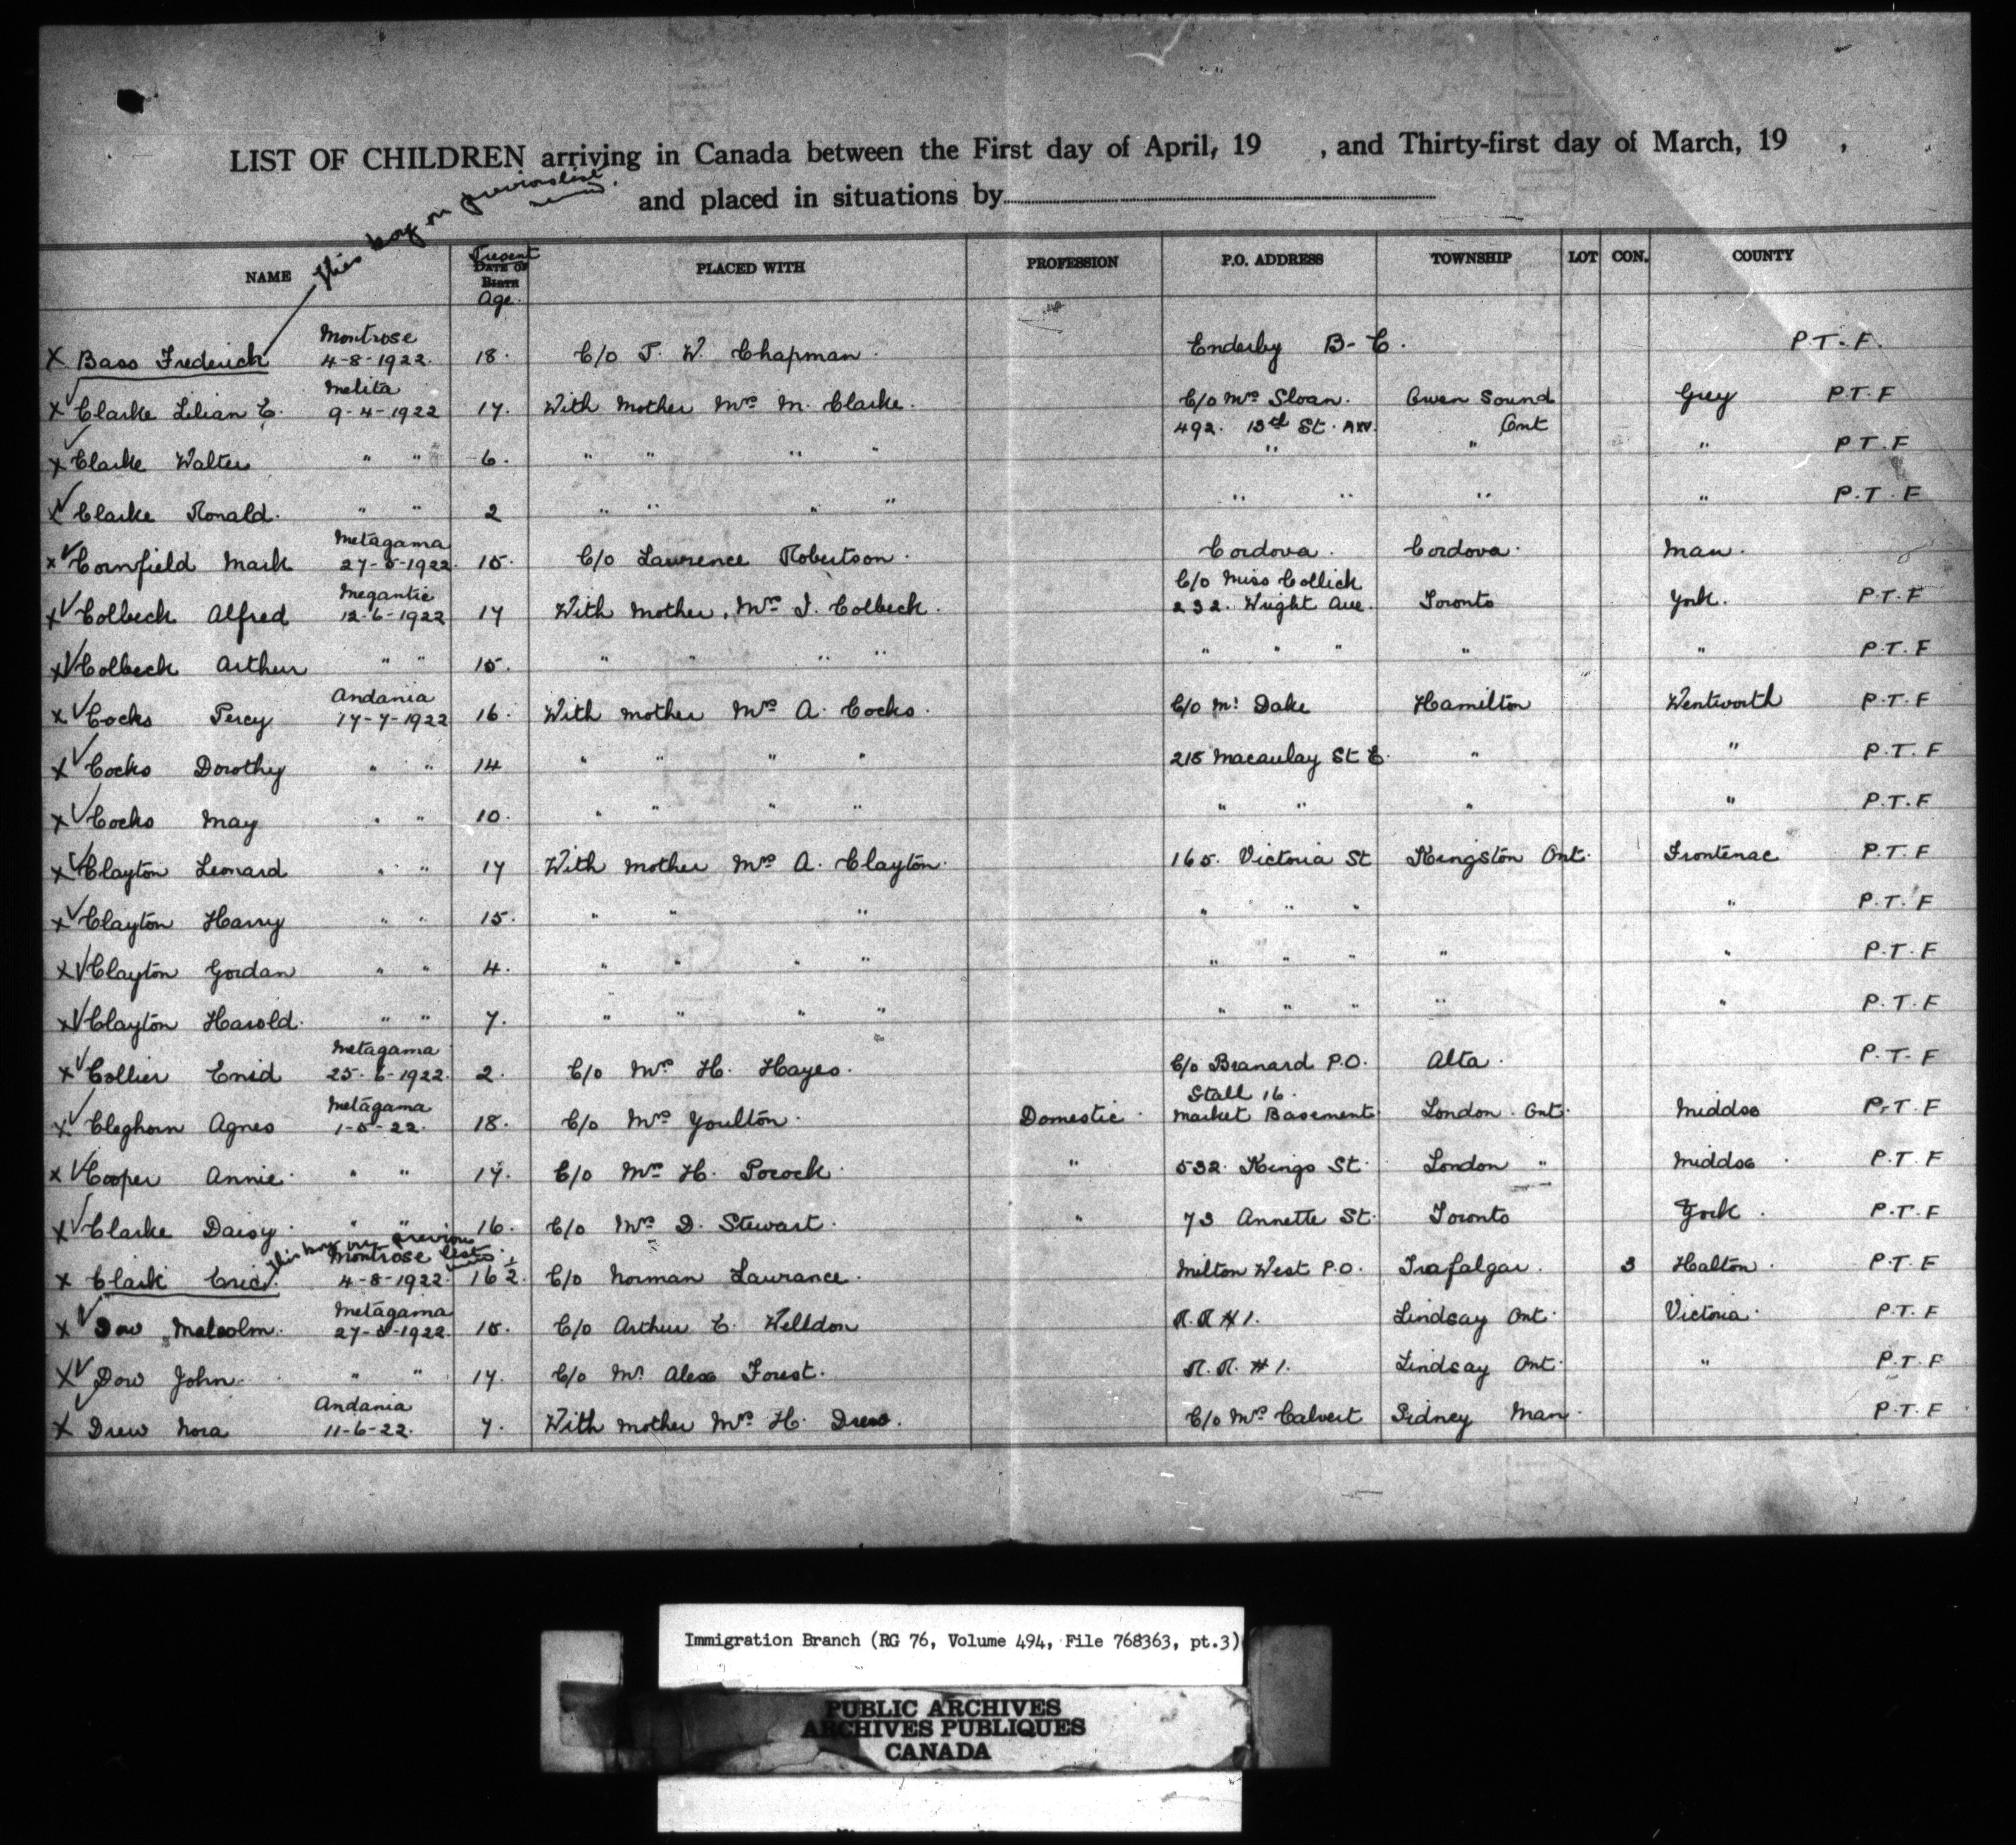 LIST OF CHILDREN arriving in Canada between the First day of April, 19 , and Thirty-first day of March, 19 ,
and placed in situations by
This boy on previous list
NAME Present DATE OF BIRTH Age. PLACED WITH PROFESSION P.O. ADDRESS TOWNSHIP LOT CON. COUNTY
Montrose
X Bass Frederick 4-8-1922. 18. C/o T. W. Chapman. Enderby B-C. P.T.F.
Melita
X Clarke Lilian E. 9-4-1922 17. With Mother Mrs M. Clarke. C/o Mrs Sloan. Owen Sound Grey P.T.F
492. 13th St. Ont
X Clarke Walter " " 6. " " " " " " " P.T.F
X Clarke Ronald. " " 2 " " " " " " " " P.T.F
Metagama
X Cornfield Mark 27-5-1922. 15. C/o Lawrence Robertson. Cordova. Cordova. Man.
Megantic C/o Miss Collick
X Colbeck Alfred 12-6-1922 17 With Mother, Mrs I. Colbeck. 232. Wright Ave. Toronto York. P.T.F
X Colbeck Arthur " " 15. " " " " " " " " " P.T.F
Andania
X Cocks Percy 17-7-1922 16. With Mother Mrs A. Cocks. C/o Mr Dake Hamilton Wentworth P.T.F
X Cocks Dorothy " " 14 " " " " 215 Macaulay St E. " " P.T.F
X Cocks May " " 10. " " " " " " " " P.T.F
X Clayton Leonard " " 17 With Mother Mrs A. Clayton. 165. Victoria St Kingston Ont. Frontenac P.T.F
X Clayton Harry " " 15. " " " " " " " P.T.F
X Clayton Gordan " " 4. " " " " " " " " " P.T.F
X Clayton Harold. " " 7. " " " " " " " " " P.T.F
Metagama
X Collier Enid 25-6-1922. 2. C/o Mrs H. Hayes. C/o Branard P.O. Alta. P.T.F
Metagama Stall 16.
X Cleghorn Agnes 1-5-22. 18. C/o Mrs Youlton. Domestic. Market Basement London. Ont. Middsx P.T.F
X Cooper Annie. " " 17. C/o Mrs H. Pocock. " 532. Kings St. London " Middsx. P.T.F
X Clarke Daisy. " " 16. C/o Mrs D. Stewart. " 73 Annette St. Toronto York. P.T.F
This boy on previous list
Montrose
X Clark Eric. 4-8-1922. 16 1/2. C/o Norman Laurance. Milton West P.O. Trafalgar. 3 Halton. P.T.F
Metagama
X Dow Malcolm. 27-5-1922. 15. C/o Arthur E. Welldon R.R #1. Lindsay Ont. Victoria. P.T.F
X Dow John. " " 17. C/o Mr Alex Forest. R.R. #1. Lindsay Ont. " P.T.F
Andania
X Drew Nora 11-6-22. 7. With Mother Mrs H. Drew. C/o Mrs Calvert Sidney Man. P.T.F
Immigration Branch (RG 76, Volume 494, File 768363, pt.3)
PUBLIC ARCHIVES
ARCHIVES PUBLIQUES
CANADA